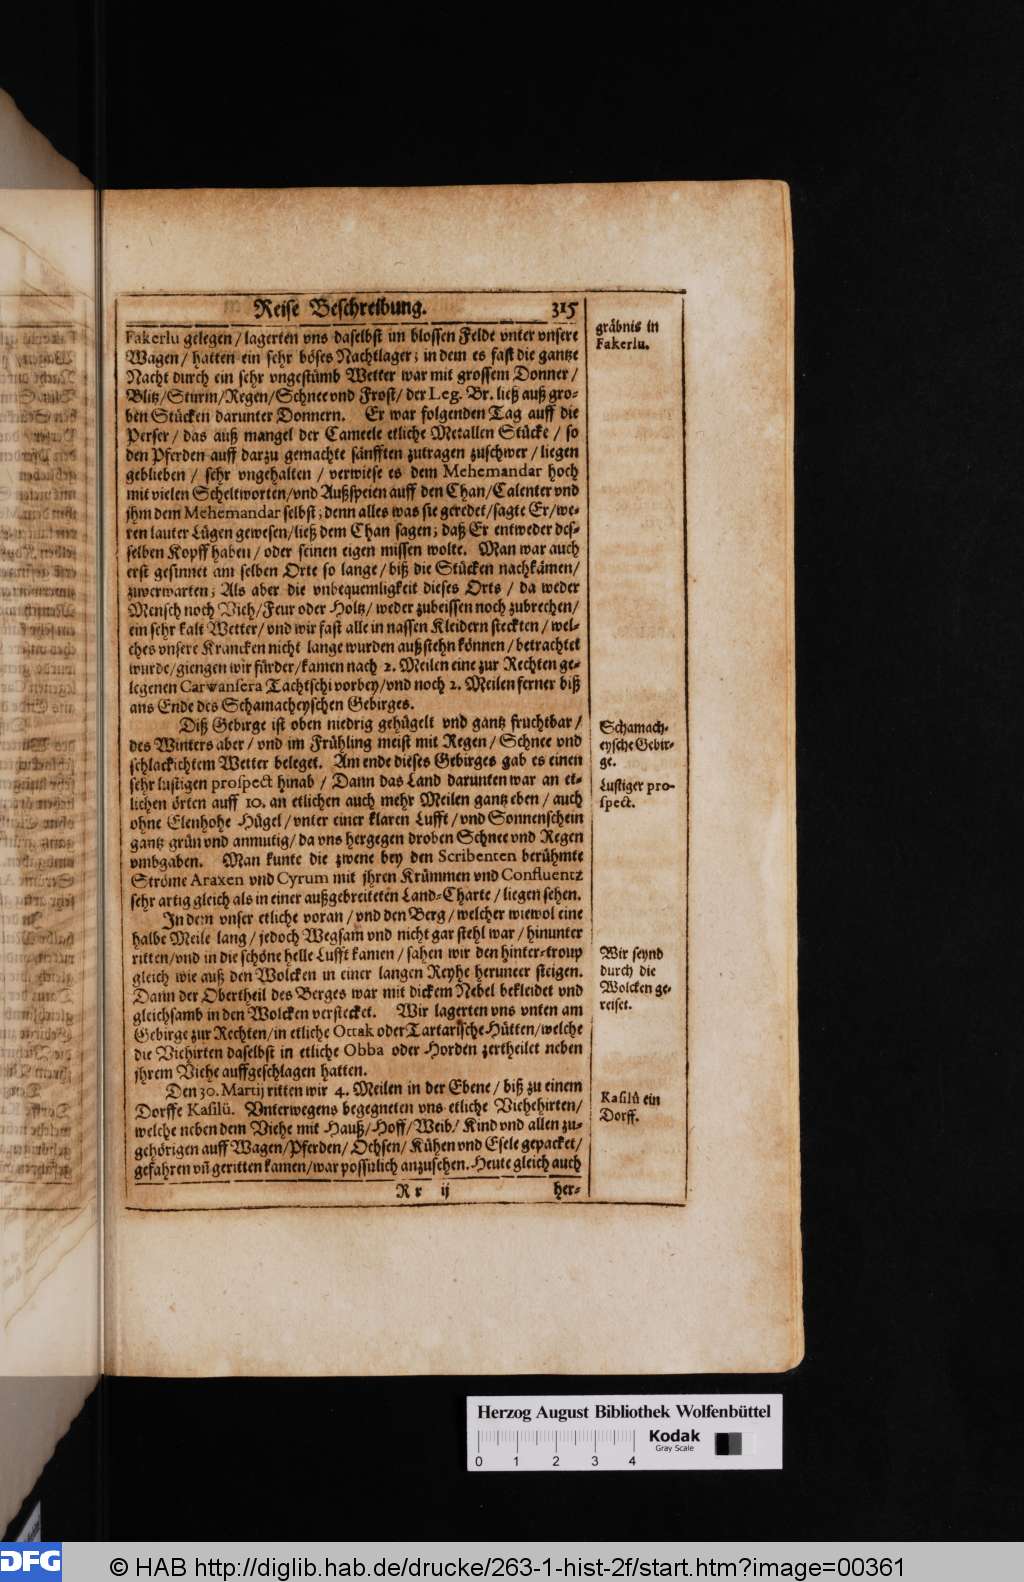 Reise Beschreibung. 315
Fakerlu gelegen / lagerten vns daselbst im blossen Felde vnter vnsere
Wagen / hatten ein sehr böses Nachtlager; in dem es fast die gantze
Nacht durch ein sehr vngestümb Wetter war mit grossem Donner /
Blitz/Sturm/Regen/Schnee vnd Frost/ der Leg. Br. ließ auß gro-
ben Stücken darunter Donnern. Er war folgenden Tag auff die
Perser / das auß mangel der Cameele etliche Metallen Stücke / so
den Pferden auff darzu gemachte sänfften zutragen zuschwer / liegen
geblieben / sehr vngehalten / verwiese es dem Mehemandar hoch
mit vielen Scheltworten/vnd Außspeien auff den Chan/Calenter vnd
jhm dem Mehemandar selbst; denn alles was sie geredet/sagte Er/we-
ren lauter Lügen gewesen/ließ dem Chan sagen; daß Er entweder des-
selben Kopff haben / oder seinen eigen missen wolte. Man war auch
erst gesinnet am selben Orte so lange / biß die Stücken nachkämen/
zuverwarten; Als aber die vnbequemligkeit dieses Orts / da weder
Mensch noch Vieh/Feur oder Holtz/ weder zubeissen noch zubrechen/
ein sehr kalt Wetter/ vnd wir fast alle in nassen Kleidern steckten / wel-
ches vnsere Krancken nicht lange wurden außstehn können / betrachtet
wurde/giengen wir fürder/kamen nach 2. Meilen eine zur Rechten ge-
legenen Carwansera Tachtschi vorbey/vnd noch 2. Meilen ferner biß
ans Ende des Schamacheyschen Gebirges.
Diß Gebirge ist oben niedrig gehügelt vnd gantz fruchtbar /
des Winters aber / vnd im Frühling meist mit Regen / Schnee vnd
schlackichtem Wetter beleget. Am ende dieses Gebirges gab es einen
sehr lustigen prospect hinab / Dann das Land darunten war an et-
lichen örten auff 10. an etlichen auch mehr Meilen gantz eben / auch
ohne Elenhohe Hügel / vnter einer klaren Lufft / vnd Sonnenschein
gantz grün vnd anmutig/ da vns hergegen droben Schnee vnd Regen
vmbgaben. Man kunte die zwene bey den Scribenten berühmte
Ströme Araxen vnd Cyrum mit jhren Krümmen vnd Confluentz
sehr artig gleich als in einer außgebreiteten Land-Charte / liegen sehen.
In dem vnser etliche voran / vnd den Berg / welcher wiewol eine
halbe Meile lang / jedoch Wegsam vnd nicht gar stehl war / hinunter
ritten/vnd in die schöne helle Lufft kamen / sahen wir den hinter-troup
gleich wie auß den Wolcken in einer langen Reyhe herunter steigen.
Dann der Obertheil des Berges war mit dickem Nebel bekleidet vnd
gleichsamb in den Wolcken verstecket. Wir lagerten vns vnten am
Gebirge zur Rechten/in etliche Ottak oder Tartarische-Hütten/welche
die Viehirten daselbst in etliche Obba oder Horden zertheilet neben
jhrem Viehe auffgeschlagen hatten.
Den 30. Martij ritten wir 4. Meilen in der Ebene / biß zu einem
Dorffe Kasilü. Vnterwegens begegneten vns etliche Viehehirten/
welche neben dem Viehe mit Hauß/Hoff/Weib/ Kind vnd allen zu-
gehörigen auff Wagen/Pferden/ Ochsen/ Kühen vnd Esele gepacket/
gefahren vñ geritten kamen/war possirlich anzusehen. Heute gleich auch
R r ij her-
gräbnis in
Fakerlu.
Schamach-
eysche Gebir-
ge.
Lustiger pro-
spect.
Wir seynd
durch die
Wolcken ge-
reiset.
Kasilů ein
Dorff.
Herzog August Bibliothek Wolfenbüttel
0 1 2 3 4
Kodak
Gray Scale
DFG © HAB http://diglib.hab.de/drucke/263-1-hist-2f/start.htm?image=00361